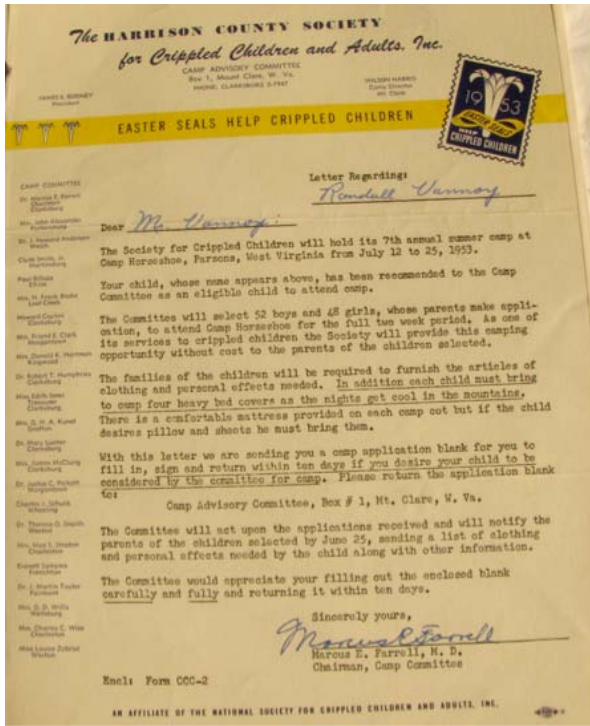 The HARRISON COUNTY SOCIETY
for Crippled Children and Adults, Inc.
CAMP ADVISORY COMMITTEE
Box 1, Mount Clare, W. Va.
PHONE: CLARKSBURG
President
WILSON HARRIS
Camp Director
Mt. Clare
1953
EASTER SEALS
HELP
CRIPPLED CHILDREN
EASTER SEALS HELP CRIPPLED CHILDREN
CAMP COMMITTEE
Chairman
Clarksburg
Mrs. John Alexander
Clyde Smith, Jr.
Martinsburg
Elkins
Mrs. H. Frank
Howard
Clarksburg
Mrs. Friend E. Clark
Morgantown
Mrs. Donald K.
Kingwood
Dr. Robert T. Humphries
Clarksburg
Miss Edith
Treasurer
Clarksburg
Mrs. G. H. A. Kunst
Grafton
Dr. Mary
Clarksburg
Mrs. James McClung
Clarksburg
Morgantown
Wheeling
Dr. Thomas G.
Weston
Charleston
Dr. J. Martin Taylor
Fairmont
Mrs. D. D. Wills
Mrs. Charles C. Wise
Charleston
Miss Louise Zobrist
Weston
Letter Regarding:
Randall Vannoy
Dear M. Vannoy:
The Society for Crippled Children will hold its 7th annual summer camp at
Camp Horseshoe, Parsons, West Virginia from July 12 to 25, 1953.
Your child, whose name appears above, has been recommended to the Camp
Committee as an eligible child to attend camp.
The Committee will select 52 boys and 48 girls, whose parents make appli-
cation, to attend Camp Horseshoe for the full two week period. As one of
its services to crippled children the Society will provide this camping
opportunity without cost to the parents of the children selected.
The families of the children will be required to furnish the articles of
clothing and personal effects needed. In addition each child must bring
to camp four heavy bed covers as the nights get cool in the mountains.
There is a comfortable mattress provided on each camp cot but if the child
desires pillow and sheets he must bring them.
With this letter we are sending you a camp application blank for you to
fill in, sign and return within ten days if you desire your child to be
considered by the committee for camp. Please return the application blank
to:
Camp Advisory Committee, Box # 1, Mt. Clare, W. Va.
The Committee will act upon the applications received and will notify the
parents of the children selected by June 25, sending a list of clothing
and personal effects needed by the child along with other information.
The Committee would appreciate your filling out the enclosed blank
carefully and fully and returning it within ten days.
Sincerely yours,
Marcus E Farrell
Marcus E. Farrell, M. D.
Chairman, Camp Committee
Encl: Form CCC-2
AN AFFILIATE OF THE NATIONAL SOCIETY FOR CRIPPLED CHILDREN AND ADULTS, INC.